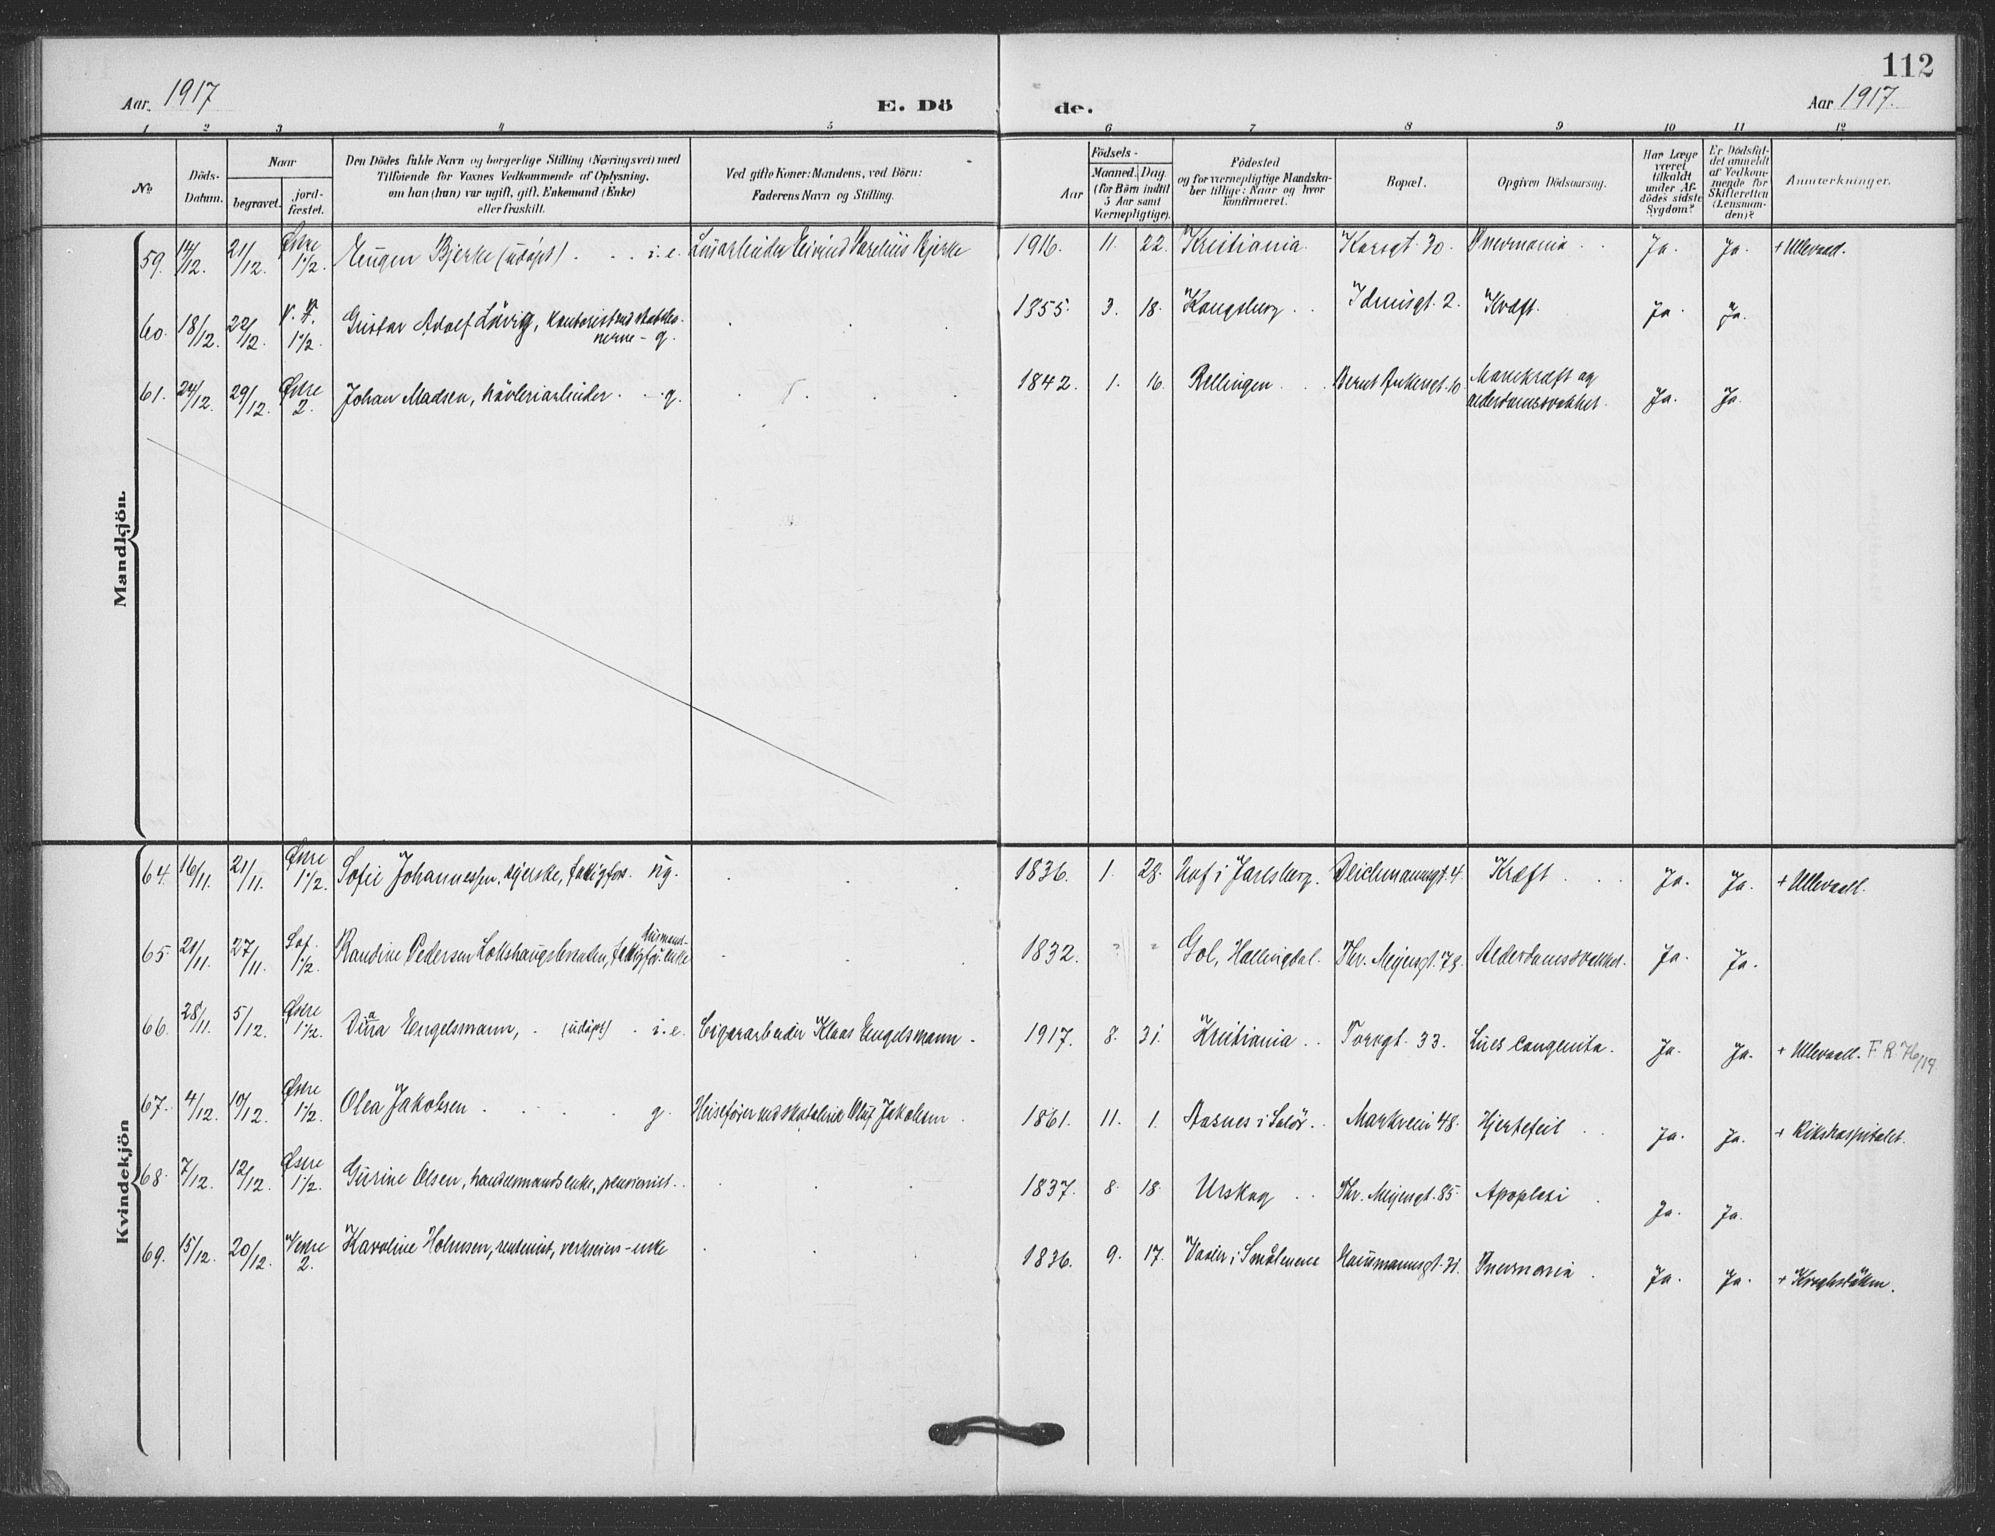 112
Aar. 1917
E. Dö
de.
Aar 1917.
1 2 3 4 5 6 7 8 9 10 11 12
No.
Döds-
Datum.
Naar
begravet.
jord-
fæstet.
Den Dödes fulde Navn og borgerlige Stilling (Næringsvei) med
Tilföiende for Voxnes Vedkommende af Oplysning,
om han (hun) var ugift, gift, Enkemand (Enke)
eller fraskilt.
Ved gifte Koner: Mandens, ved Börn:
Faderens Navn og Stilling.
Aar
Födsels-
Maaned. Dag.
(for Börn indtil
5 Aar samt
Værnepligtige).
Födested
og for værnepligtige Mandska-
ber tillige: Naar og hvor
konfirmeret.
Bopæl.
Opgiven Dödsaarsag.
Har Læge
været
tilkaldt
under Af-
dödes sidste
Sygdom?
Er Dödsfal-
det anmeldt
af Vedkom-
mende for
Skifteretten
(Lensman-
den)?
Anmærkninger.
Mandkjön.
59. 14/12. 21/12. Østre 1 1/2. Eugen Bjerke (udöpt) . . . i. e. Løsarbeider Eivind Bjerke 1916. 11. 22. Kristiania. Korsgt. 30. Pnevmonia . . Ja. Ja. + Ullevaal.
60. 18/12. 22/12. V. F. 1 1/2. Gustav Adolf Lövig, kontorist ved
nerne - g. 1855. 3. 18. Kongsberg . . Idunsgt. 2. Kræft. Ja. Ja.
61. 24/12. 29/12. Østre 2. Johan Madsen, hövleriarbeider . - g. 1842. 1. 16. Rellingen . . Bernt Ankersgt. 10. Mavekræft og
alderdomssvakhet. Ja. Ja.
Kvindekjön
64. 16/11. 21/11. Østre 1 1/2. Sofie Johannessen, syerske, fattigfors. ug. 1836. 1. 28. Hof i Jarlsberg. Deichmannsgt. 4. Kræft . . . Ja. Ja. + Ullevaal.
65. 21/11. 27/11. Sof. 1 1/2. Randine Pedersen fattigfors. enke 1832. " " Gol, Hallingdal. Thv. Meyersgt. 73. Alderdomssvakhet. Ja. Ja.
66. 28/11. 5/12. Østre 1 1/2. Dina Engelsmann, . (udöpt) . i. e. Cigararbeider Klaas Engelsmann . 1917. 8. 31. Kristiania . . Torvgt. 33. Lues congenita. Ja. Ja. + Ullevaal. F. R.
67. 4/12. 10/12. Østre 1 1/2. Olea Jakobsen . . . . . g. Heisefører ved Oluf Jakobsen . 1861. 11. 1. Aasnes i Solör . . Markveien 48. Hjertefeil . . Ja. Ja. + Rikshospitalet.
68. 7/12. 12/12. Østre 1 1/2. Gurine Olsen, handelsmandsenke, pensionist . . 1837. 8. 18. Urskog . . Thv. Meyersgt. 85. Apoplexi . Ja. Ja.
69. 15/12. 20/12. Vestre 2. Karoline Holmsen, rentenist, verkseiers-enke 1836. 9. 17. Vaaler i Smålenene Haussmannsgt. 31. Pnevmonia . Ja. Ja. + Kroghstötten.